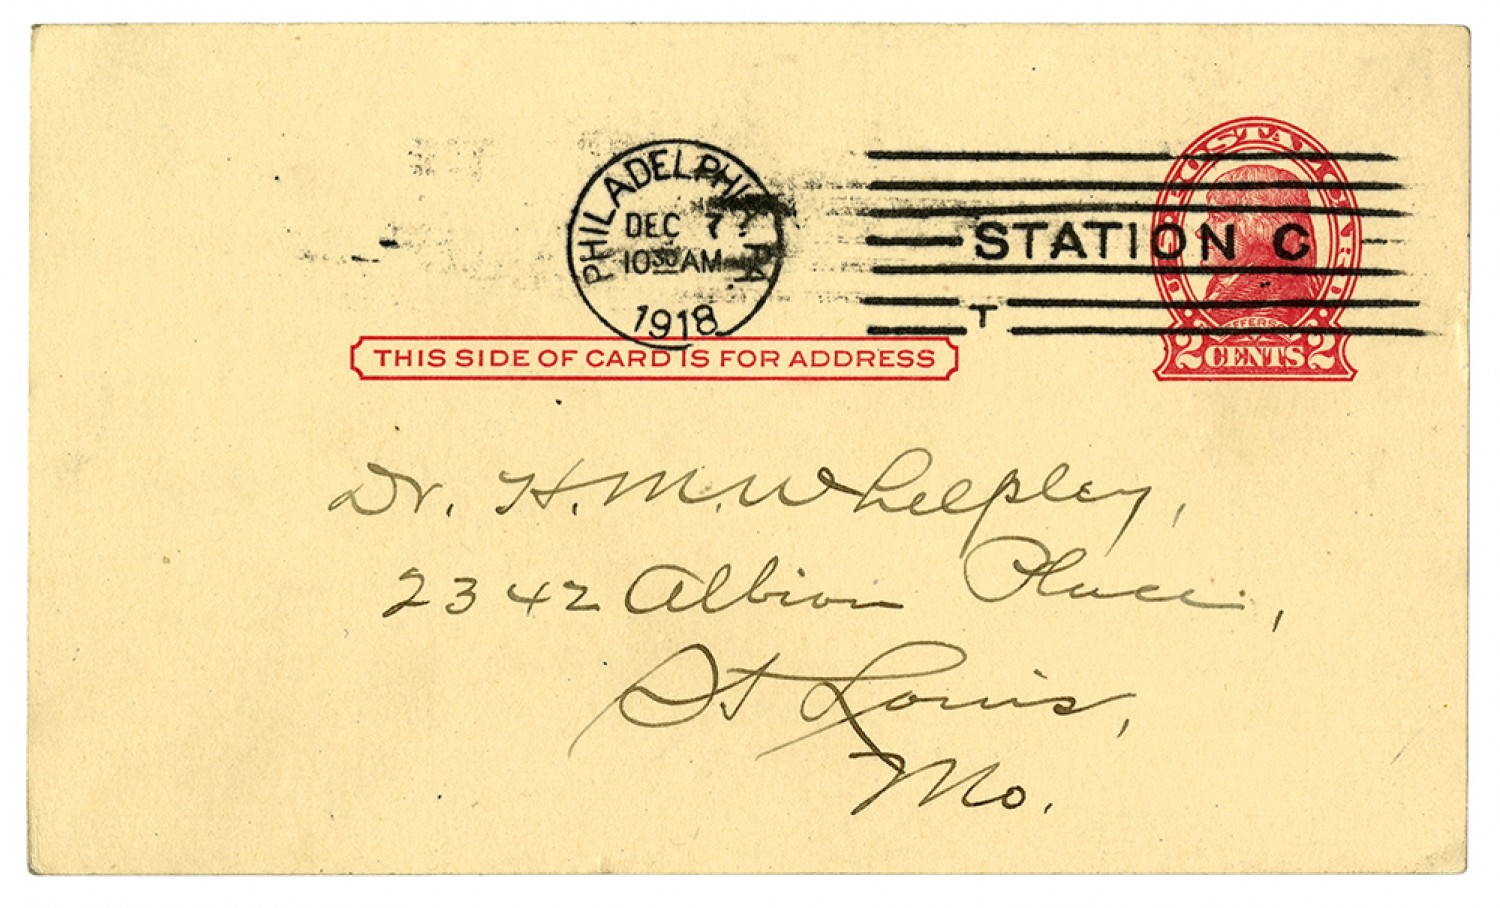 PHILADELPHIA. PA.
DEC 7
10 30 AM
1918
STATION C
T
U.S. POSTAGE
JEFFERSON
2 CENTS 2
THIS SIDE OF CARD IS FOR ADDRESS
Dr. H. M. Whelpley,
2342 Albion Place,
St Louis,
Mo.